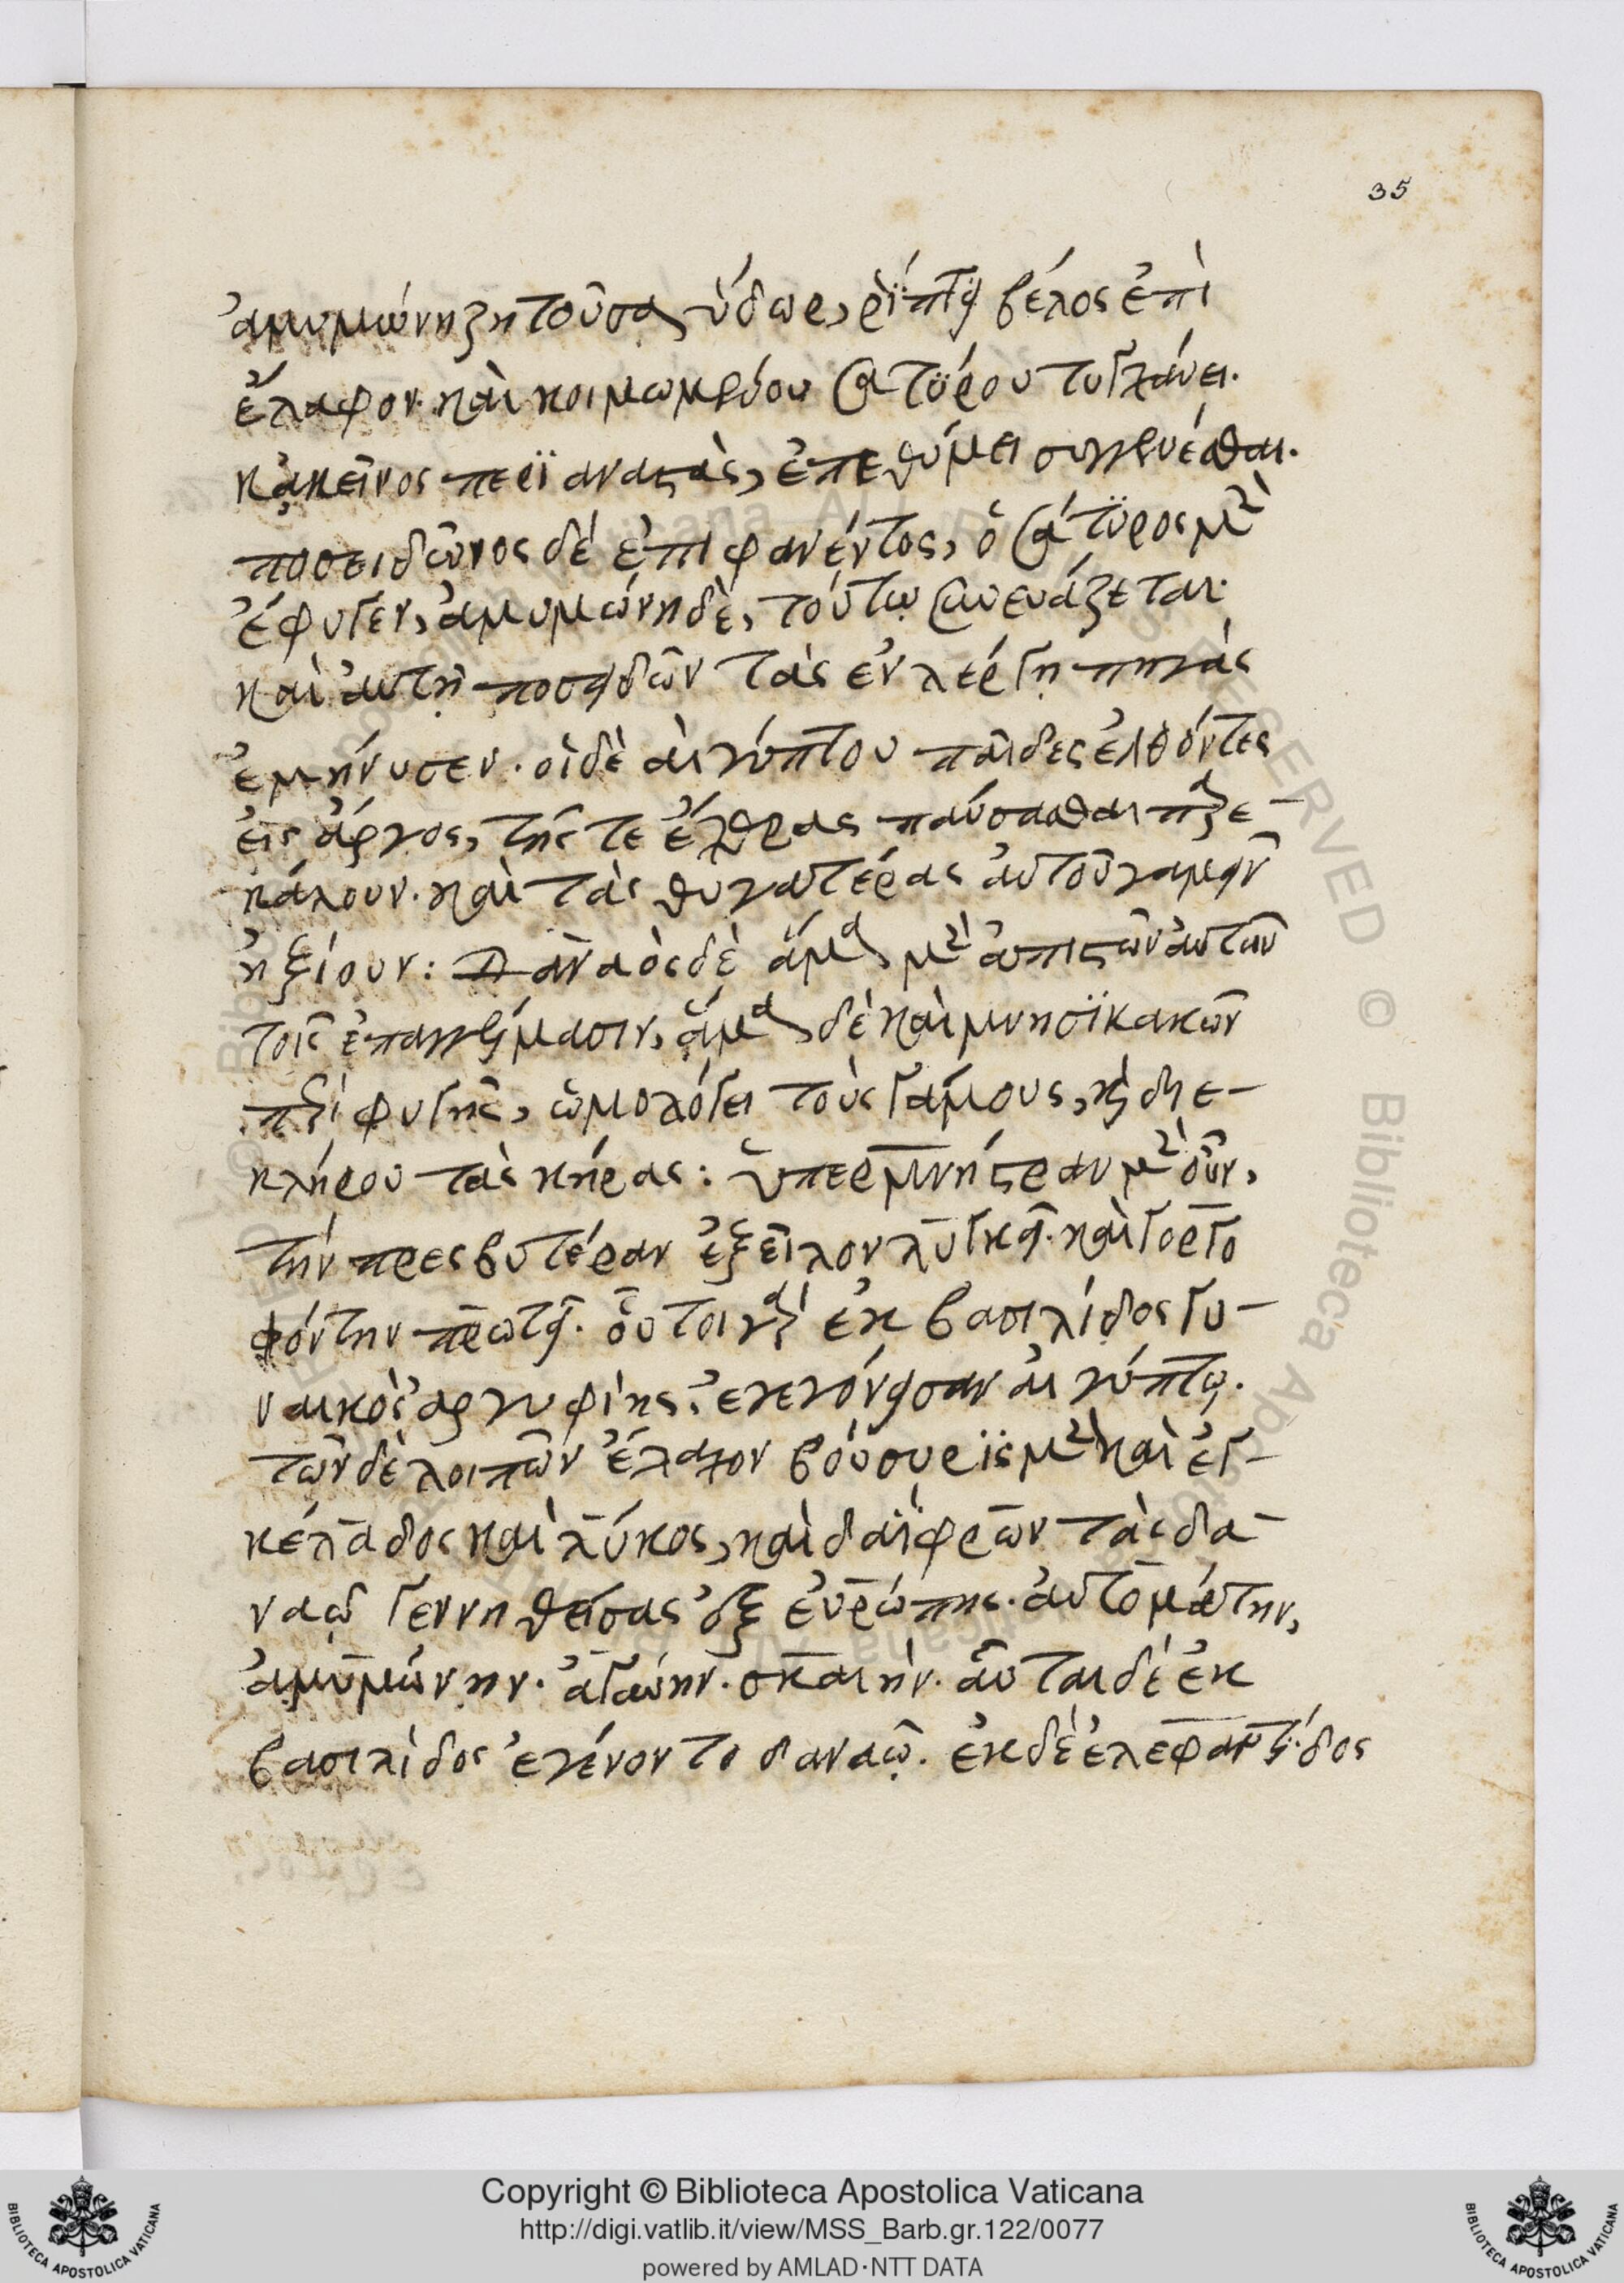 35
ἀμυμώνη ζητοῦσα ὕδωρ, ῥίπτει βέλος ἐπὶ
ἔλαφον. καὶ κοιμωμένου σατύρου τυγχάνει.
κἀκεῖνος περϊαναστὰς, ἐπεθύμει συγγενέσθαι.
ποσειδῶνος δέ ἐπιφανέντος, ὁ σάτυρος μὲν
ἔφυγεν, ἀμυμώνη δὲ, τούτω συνευάζεται.
καὶ αὐτῇ ποσειδῶν τὰς ἐν λέργῃ πηγὰς
ἐμήνυσεν. οἱ δὲ αἰγύπτου παῖδες ἐλθόντες
εἰς ἄργος, τῆς τε ἔχθρας παύσασθαι παρε-
κάλουν. καὶ τὰς θυγατέρας αὐτοῦ γαμεῖν
ἠξίουν: Δαναὸς δὲ ἅμα μὲν ἀπιστῶν αὐτῶν
τοῖς ἐπαγγέλμασιν, ἅμα δὲ καὶ μνησϊκακῶν
περὶ φυγῆς, ὡμολόγει τοὺς γάμους, καὶ διε-
κλήρου τὰς κόρας: ὑπερμνήστραν μὲν οὖν,
τὴν πρεσβυτέραν ἐξεῖλον λυγκεῖ. καὶ γοργο
φόντην πρωτεῖ. οὗτοι γὰρ ἐκ βασιλίδος γυ-
ναικὸς ἀργυφίης. ἐγεγόνεισαν αἰγύπτῳ.
τῶν δὲ λοιπῶν ἔλαχον βούσυρϊς μὲν καὶ ἐγ-
κέλαδος καὶ λύκος, καὶ δαΐφρων τὰς δα-
ναῷ γεννηθείσας ἐξ εὐρώπης. αὐτομάτην,
ἀμυμώνην. ἀγαύην. σκαιὴν. αὗται δὲ ἐκ
βασιλίδος ἐγένοντο δαναῷ. ἐκ δὲ ἐλεφαντίδος
Copyright © Biblioteca Apostolica Vaticana
http://digi.vatlib.it/view/MSS_Barb.gr.122/0077
powered by AMLAD·NTT DATA
BIBLIOTECA APOSTOLICA VATICANA
BIBLIOTECA APOSTOLICA VATICANA